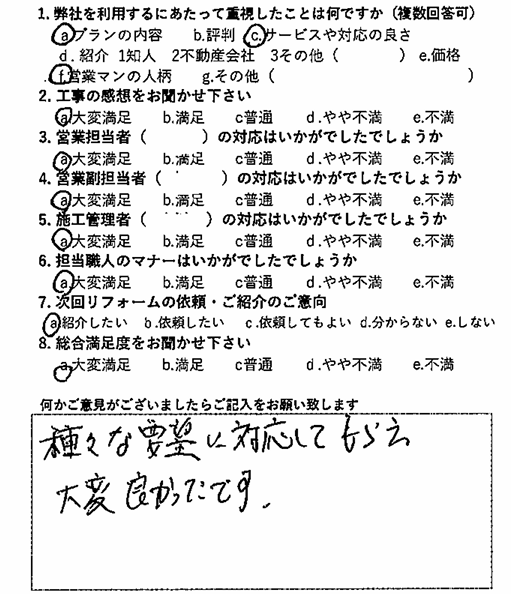 1. 弊社を利用するにあたって重視したことは何ですか（複数回答可）
a プランの内容 b.評判 c.サービスや対応の良さ
d. 紹介 1知人 2不動産会社 3その他（ ）e.価格
f.営業マンの人柄 g.その他（ ）
2. 工事の感想をお聞かせ下さい
a大変満足 b.満足 c普通 d.やや不満 e.不満
3. 営業担当者（ ）の対応はいかがでしたでしょうか
a大変満足 b.満足 c普通 d.やや不満 e.不満
4. 営業副担当者（ ）の対応はいかがでしたでしょうか
a大変満足 b.満足 c普通 d.やや不満 e.不満
5. 施工管理者（ ）の対応はいかがでしたでしょうか
a大変満足 b.満足 c普通 d.やや不満 e.不満
6. 担当職人のマナーはいかがでしたでしょうか
a大変満足 b.満足 c普通 d.やや不満 e.不満
7. 次回リフォームの依頼・ご紹介のご意向
a紹介したい b.依頼したい c.依頼してもよい d.分からない e.しない
8. 総合満足度をお聞かせ下さい
a.大変満足 b.満足 c普通 d.やや不満 e.不満
何かご意見がございましたらご記入をお願い致します
種々な要望に対応してもらえ
大変良かったです.